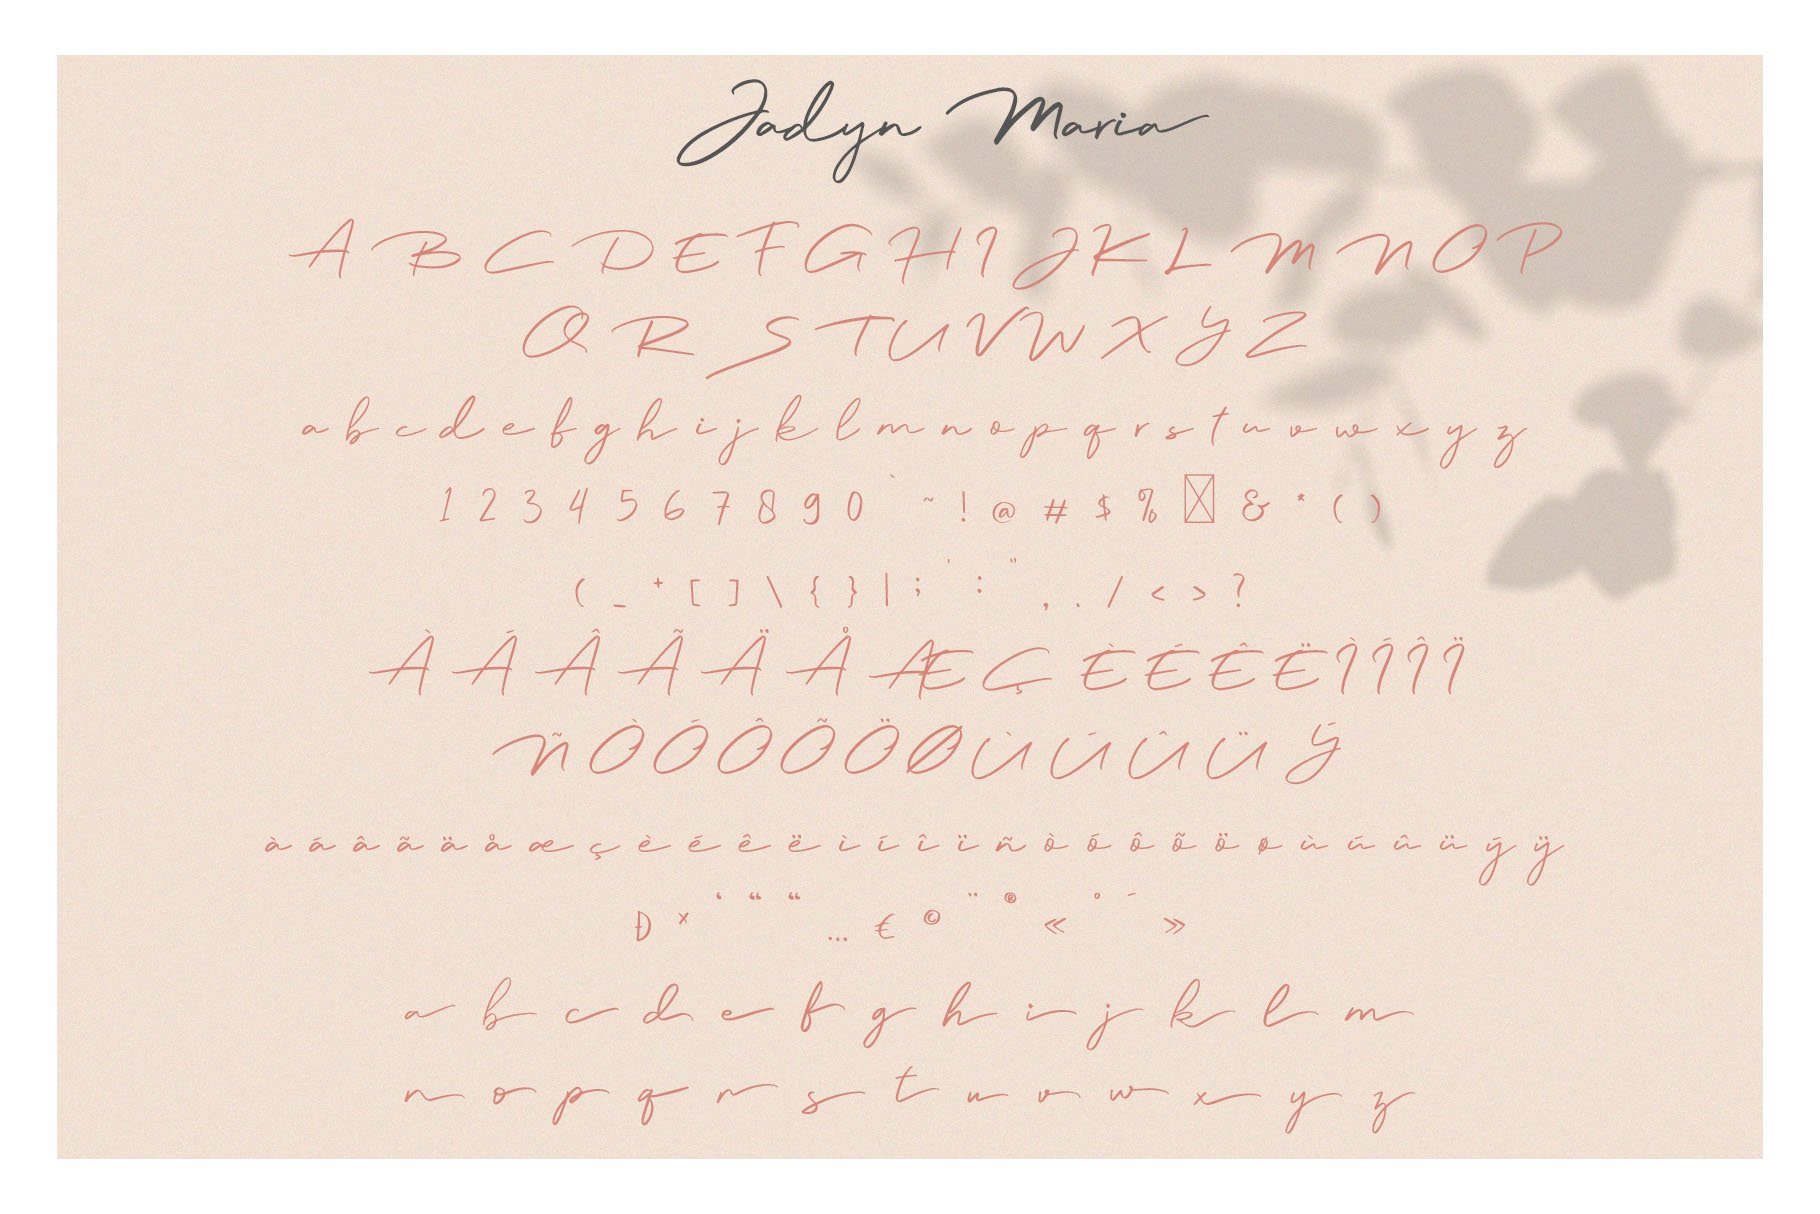 Jadyn Maria
A B C D E F G H I J K L M N O P
Q R S T U V W X Y Z
a b c d e f g h i j k l m n o p q r s t u v w x y z
1 2 3 4 5 6 7 8 9 0 ` ~ ! @ # $ % & * ( )
( _ + [ ] \ { } | ; ' : " , . / < > ?
À Á Â Ã Ä Å Æ Ç È É Ê Ë Ì Í Î Ï
Ñ Ò Ó Ô Õ Ö Ø Ù Ú Û Ü Ý
à á â ã ä å æ ç è é ê ë ì í î ï ñ ò ó ô õ ö ø ù ú û ü ý ÿ
Ð × ‘ “ “ … € © ¨ ® « ° ´ »
a b c d e f g h i j k l m
n o p q r s t u v w x y z